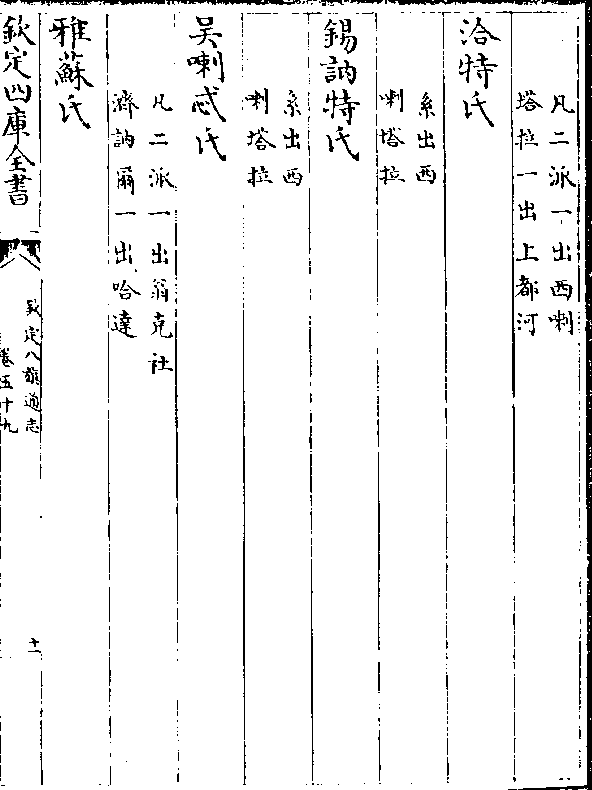 凡二派一出西喇
塔拉一出上都河
洽特氏
系出西
喇塔拉
錫訥特氏
系出西
喇塔拉
吴喇忒氏
凡二派一出翁克社
濟訥爾一出哈達
雅蘇氏
欽定四庫全書
欽定八旗通志
卷五十九
十一